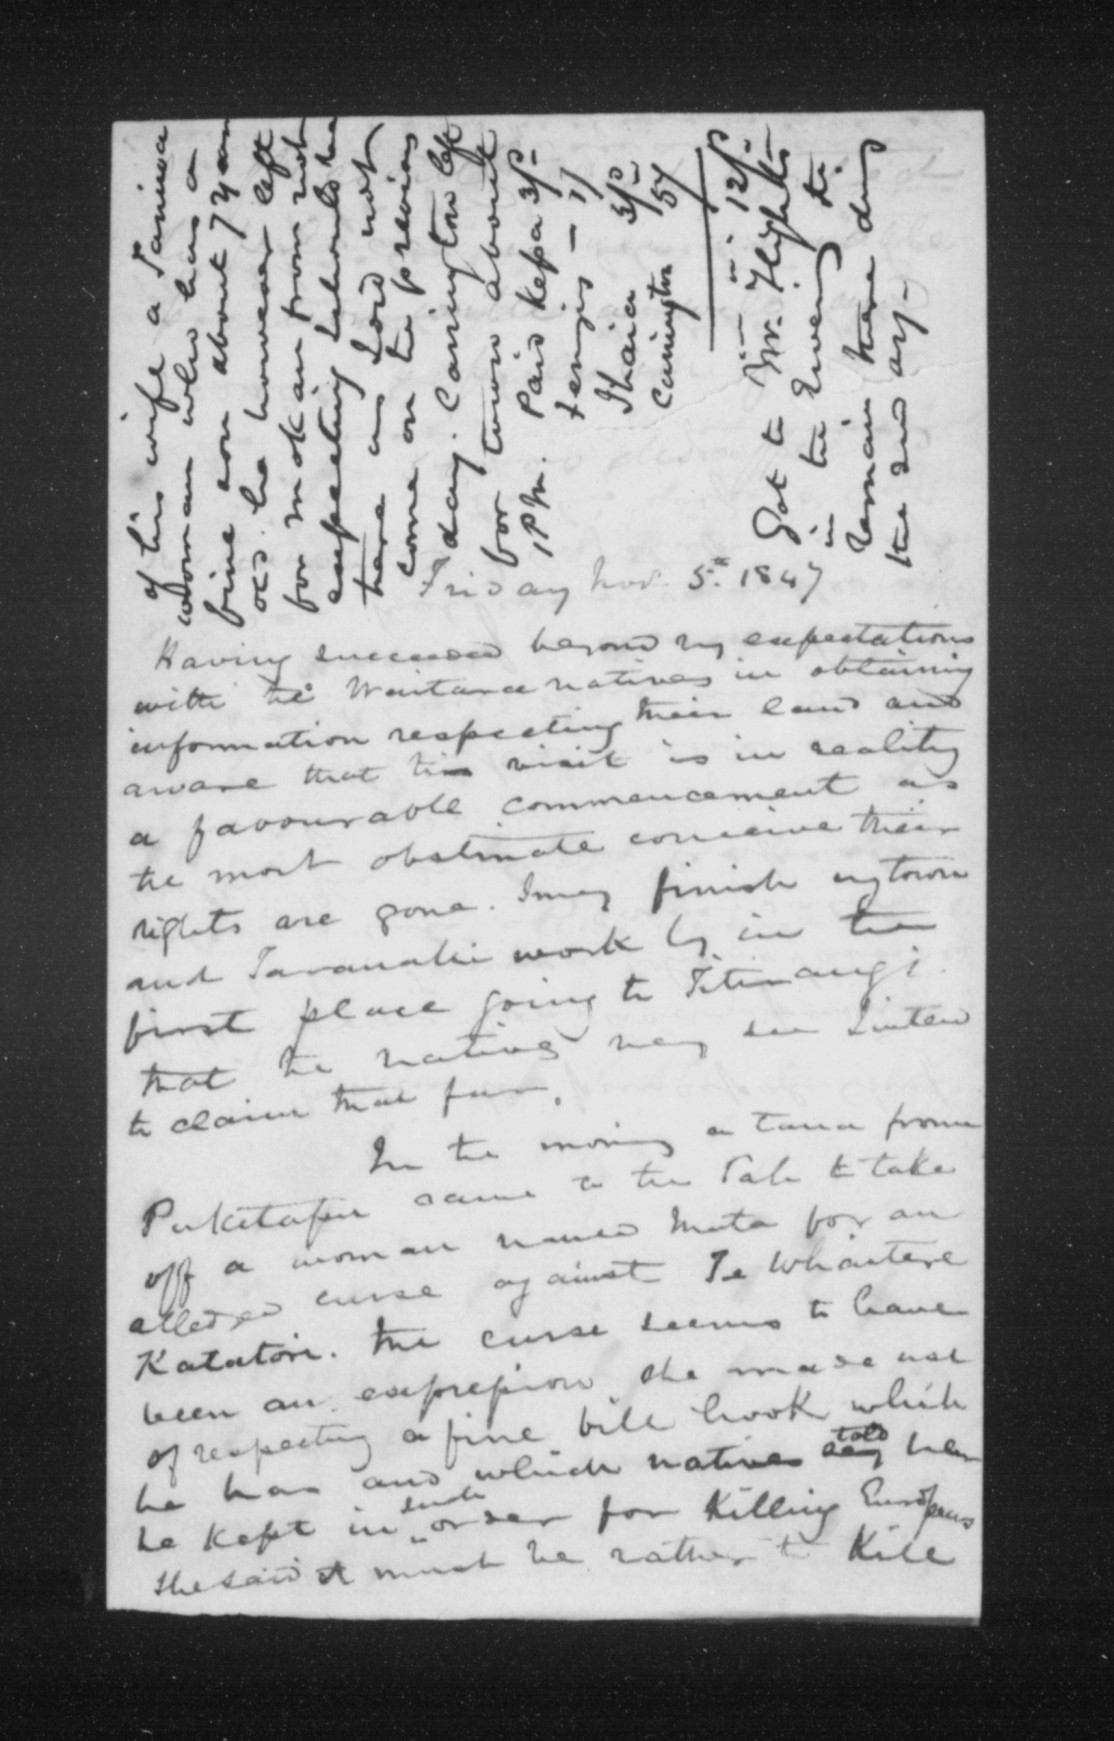 of his wife a Taniwa
woman who has a
fine son about 7 years
old. he however left
for Mokau from not
expecting I should be
here as I did not
come on the previous
day. Carrington left
for town about
1 P.M. Paid Kepa 3/-
1/
Ihaia 3/-
Carrington 5/
12/-
Got to Mr. Flights
in the Evening to
remain here during
the 2nd day -
Friday Nov. 5th. 1847
Having succeeded beyond my expectations
with the Waitara natives in obtaining
information respecting their land and
aware that this visit is in reality
a favourable commencement as
the most obstinate conceive their
rights are gone. I may finish my town
and Taranaki work by in the
first place going to Titirangi
that the natives may see I intend
to claim that far.
In the morning a taua from
Puketapu came to the Pah to take
off a woman named Mata for an
alledged curse against Te Whaitere
Katatore. The curse seems to have
been an expression she made use
of respecting a fine bill hook which
he has and which natives told her
he kept in such order for killing Europeans
she said it must be rather to kill